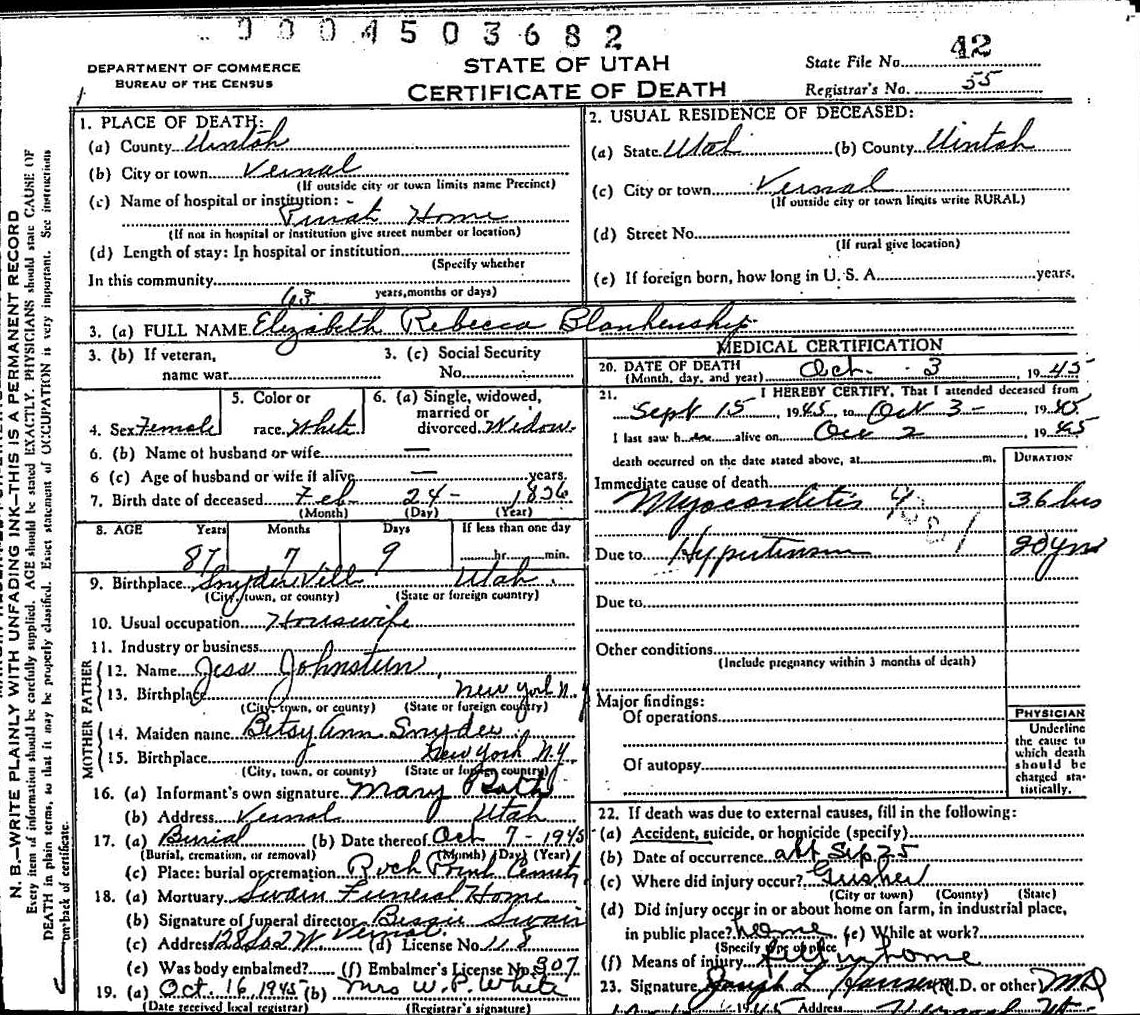 0004503682
DEPARTMENT OF COMMERCE
BUREAU OF THE CENSUS
STATE OF UTAH
CERTIFICATE OF DEATH
State File No. 42
Registrar's No. 55
N. B.—WRITE PLAINLY WITH UNFADING INK—THIS IS A PERMANENT RECORD
Every item of information should be carefully supplied. AGE should be stated EXACTLY. PHYSICIANS should state CAUSE OF
DEATH in plain terms, so that it may be properly classified. Exact statement of OCCUPATION is very important. See instructions
on back of certificate.
1. PLACE OF DEATH:
(a) County Uintah
(b) City or town Vernal
(If outside city or town limits name Precinct)
(c) Name of hospital or institution: -
Home
(If not in hospital or institution give street number or location)
(d) Length of stay: In hospital or institution
(Specify whether
In this community 63
years, months or days)
2. USUAL RESIDENCE OF DECEASED:
(a) State Utah (b) County Uintah
(c) City or town Vernal
(If outside city or town limits write RURAL)
(d) Street No.
(If rural give location)
(e) If foreign born, how long in U. S. A. years.
3. (a) FULL NAME Elizabeth Rebecca Blankenship
3. (b) If veteran, name war
3. (c) Social Security No.
4. Sex Female
5. Color or race White
6. (a) Single, widowed, married or divorced Widow
6. (b) Name of husband or wife —
6 (c) Age of husband or wife if alive — years.
7. Birth date of deceased Feb 24 -
(Month) (Day) (Year)
8. AGE Years Months Days If less than one day
87 7 9 hr. min.
9. Birthplace Snyder Vill Utah
(City, town, or county) (State or foreign country)
10. Usual occupation Housewife
11. Industry or business
FATHER
12. Name Jess Johnstun
13. Birthplace New York N.Y
(City, town, or county) (State or foreign country)
MOTHER
14. Maiden name Betsy Ann Snyder
15. Birthplace New York N.Y
(City, town, or county) (State or foreign country)
16. (a) Informant's own signature Mary
(b) Address Vernal Utah
17. (a) Burial (b) Date thereof Oct 7 - 1945
(Burial, cremation, or removal) (Month) (Day) (Year)
(c) Place: burial or cremation Rock Point
18. (a) Mortuary Swain Funeral Home
(b) Signature of funeral director Bessie Swain
(c) Address 128 So 2 W Vernal (d) License No. 118
(e) Was body embalmed? (f) Embalmer's License No. 307
19. (a) Oct. 16, 1945 (b) Mrs W. P. White
(Date received local registrar) (Registrar's signature)
MEDICAL CERTIFICATION
20. DATE OF DEATH
(Month, day, and year) Oct. 3 1945
21. I HEREBY CERTIFY, That I attended deceased from
Sept 15, 1945, to Oct 3 -, 1945
I last saw her alive on Oct 2, 1945
death occurred on the date stated above, at m.
DURATION
Immediate cause of death
Myocarditis 36 hrs
Due to Hypertension 20 yrs
Due to
Other conditions
(Include pregnancy within 3 months of death)
Major findings:
Of operations
Of autopsy
PHYSICIAN
Underline
the cause to
which death
should be
charged sta-
tistically.
22. If death was due to external causes, fill in the following:
(a) Accident, suicide, or homicide (specify)
(b) Date of occurrence abt Sep 25
(c) Where did injury occur? Gusher
(City or town) (County) (State)
(d) Did injury occur in or about home on farm, in industrial place,
in public place? home (e) While at work?
(Specify type of place
(f) Means of injury fell in home
23. Signature Joseph L Hansen (M.D. or other) MD
1945 Address Vernal Ut